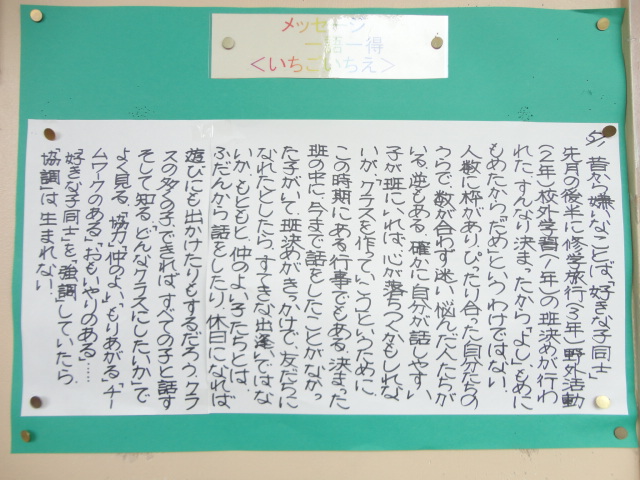 メッセージ
一語一得
＜いちごいちえ＞
57 昔から嫌いなことば、「好きな子同士」
先月の後半に修学旅行(3年)野外活動
(2年)校外学習(1年)の班決めが行わ
れた。すんなり決まったから「よし」、もめに
もめたから「だめ」というわけではない。
人数に枠がありぴったり合った自分たちの
うらで、数が合わず迷い悩んだ人たちが
いる。逆もある。確かに自分が話しやすい
子が班にいれば、心が落ちつくかもしれな
いが、クラスを作っていこうというために、
この時期にある行事でもある。決まった
班の中に、今まで話をしたことがなかっ
た子がいて、班決めがきっかけで、友だちに
なれたとしたら、すてきな出逢いではな
いか。もともと、仲のよい子たちとは、
ふだんから話をしたり、休日になれば
遊びにも出かけたりもするだろう。クラ
スの多くの子、できれば、すべての子と話す
そして知る。「どんなクラスにしたいか」で
よく見る、「協力」「仲のよい」「もりあがる」「チー
ムワークのある」「おもいやりのある」……
「好きな子同士」を「強調」していたら、
「協調」は、生まれない。